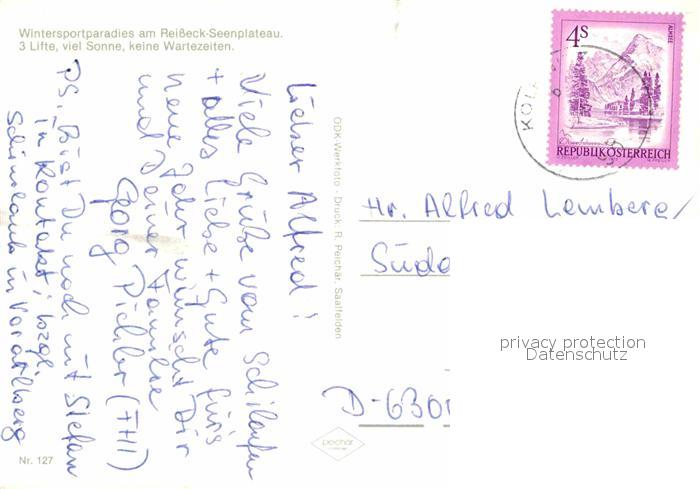 Wintersportparadies am Reißeck-Seenplateau.
3 Lifte, viel Sonne, keine Wartezeiten.
Lieber Alfred!
Viele Grüße vom Schilaufen
+ alles Liebe + Gute fürs
neue Jahr wünscht Dir
und Deiner Familie
Georg Pichler (FHI)
PS. Bist Du noch mit Stefan
in Kontakt; bzgl.
Schiurlaub in Vorarlberg
Nr. 127
ODK-Werkfoto - Druck: R. Peichär, Saalfelden
peichär
4S
ALMSEE
REPUBLIK ÖSTERREICH
KOL
Hr. Alfred
Süda
D-6301
privacy protection
Datenschutz